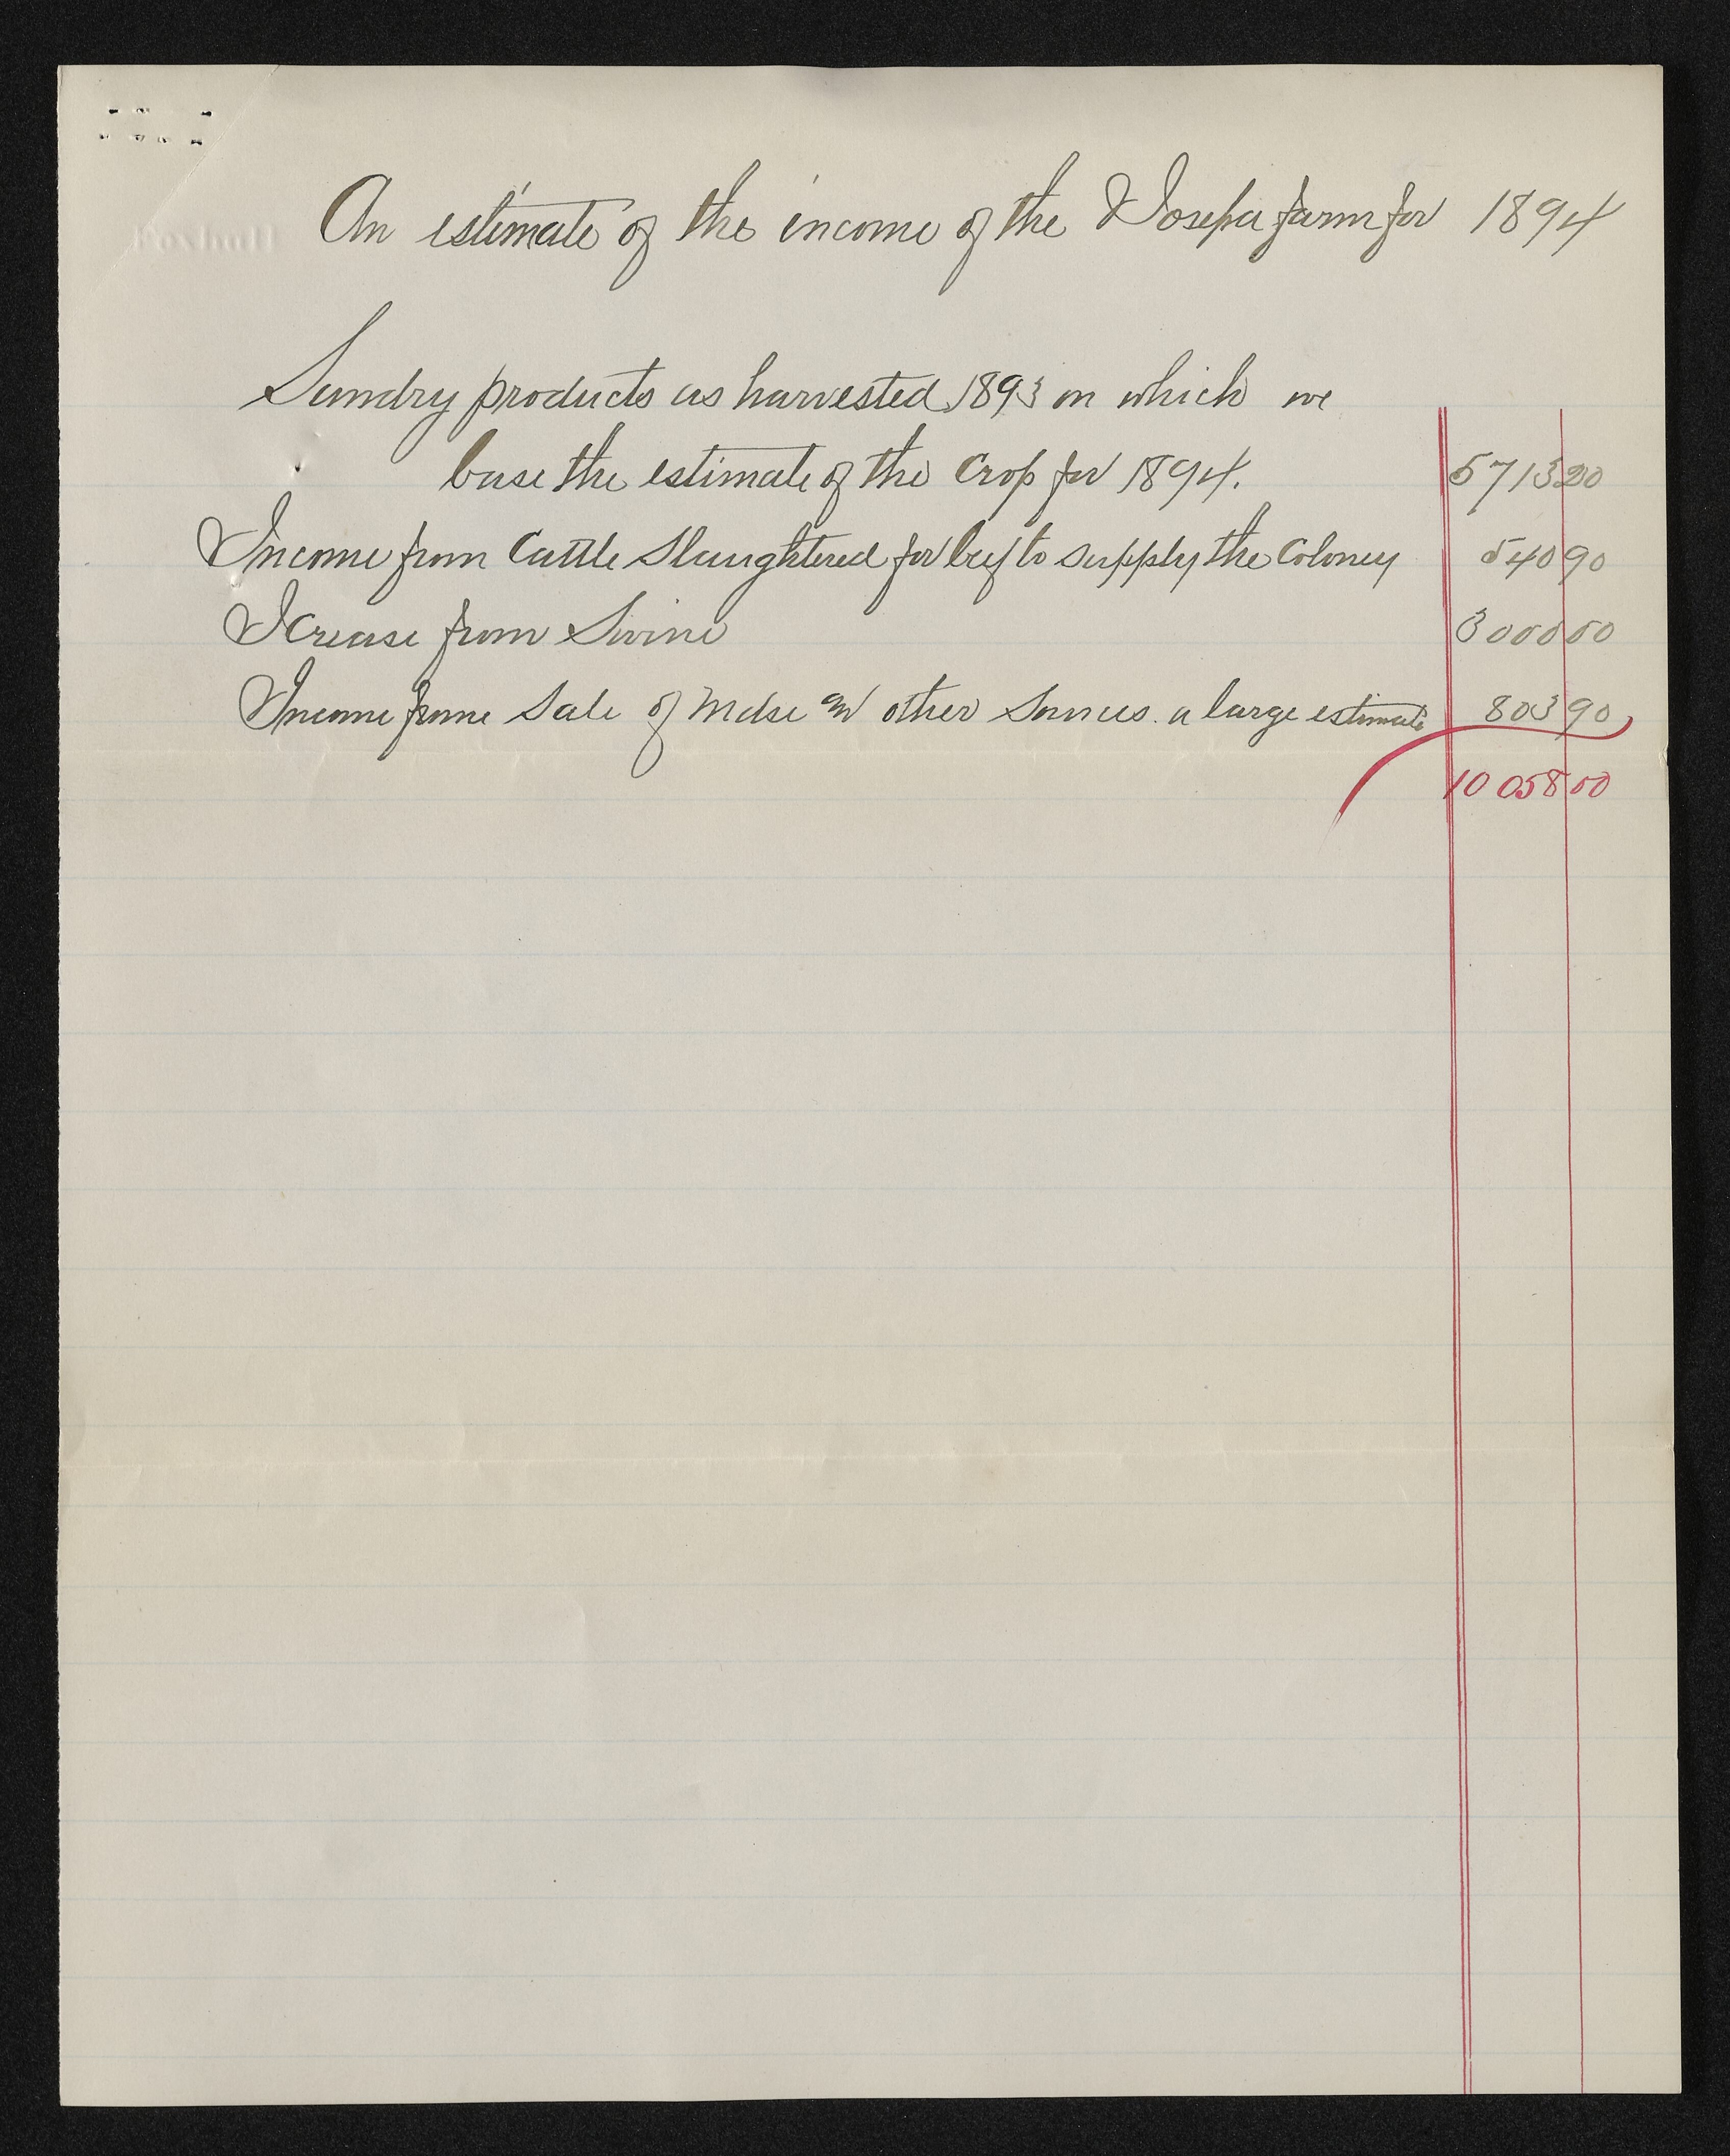 Foxhull
An estimate of the income of the Iosepa farm for 1894
Sundry products as harvested 1893 on which we
base the estimate of the Crop for 1894. 5713 20
Income from Cattle Slaughtered for beef to supply the Coloney 540 90
ICrease from Swine 3000 00
Income frome Sale of Mdse and other Sources. a large estimate 803 90
10058 00